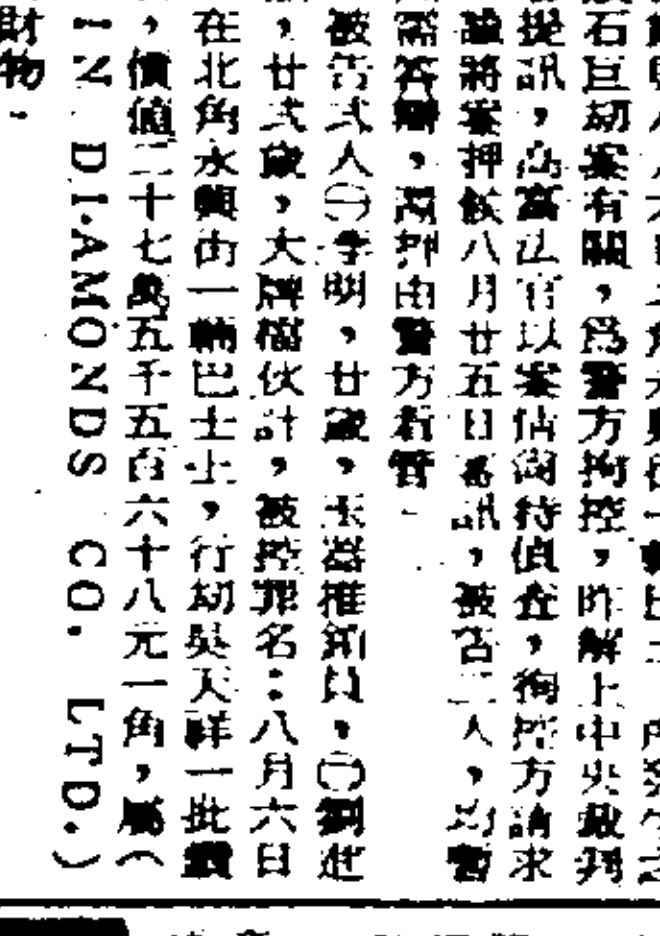 石巨刧案有關，爲警方拘控，昨解上中央裁判
提訊，高富山官以案情尚待偵查，徇控方請求
諭將案押候八月廿五日審訊，被告二人，均暫
需答辯，還押由警方看管。
被告弍人㊀李明，廿歲，玉器推銷員，㊁劉
，廿弍歲，大牌檔伙計，被控罪名：八月六日
在北角水興街一輛巴士上，行刧吳天祥一批鑽
，價値二十七萬五千五百六十八元一角，屬（
IN DIAMONDS CO. LTD.）
財物。